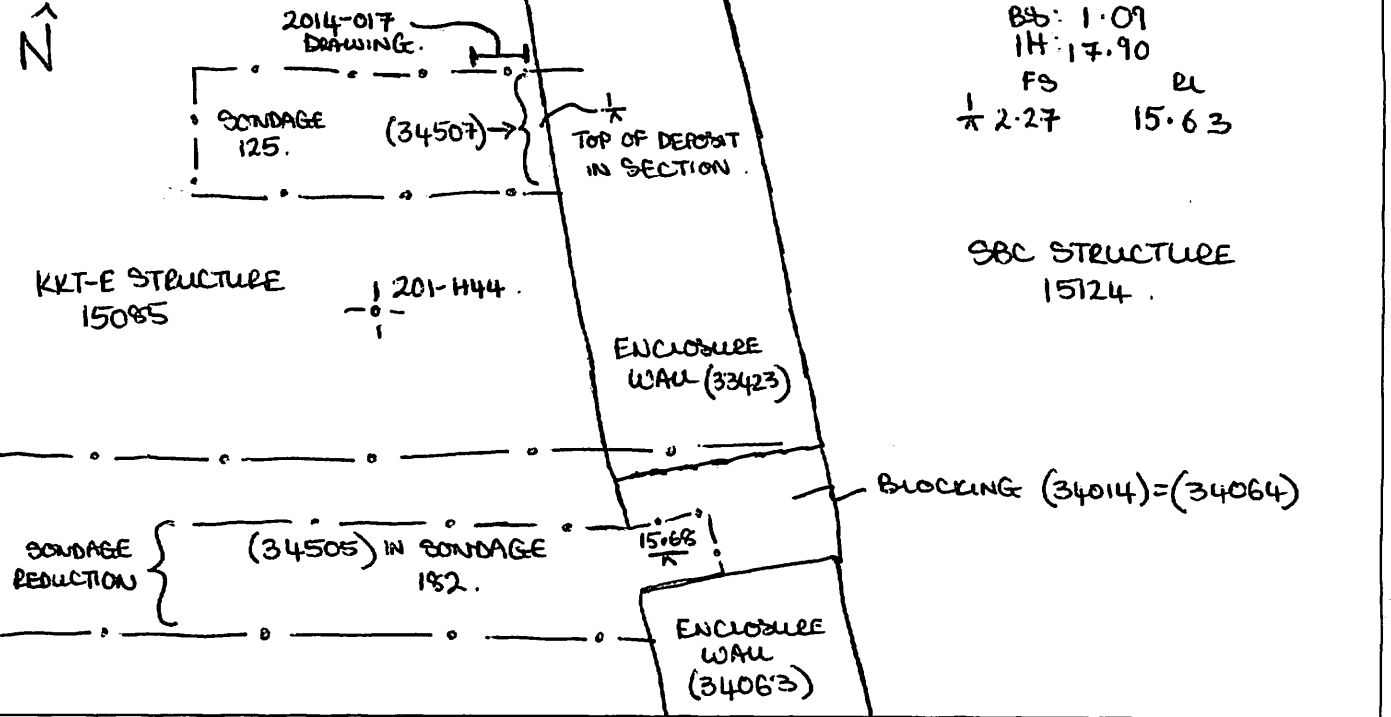 N
2014-017
DRAWING.
BS: 1.09
IH: 17.90
FS RL
1 2.27 15.63
SONDAGE
125.
(34507)
1
TOP OF DEPOSIT
IN SECTION.
KKT-E STRUCTURE
15085
201-H44.
SBC STRUCTURE
15124.
ENCLOSURE
WALL (33423)
BLOCKING (34014)=(34064)
SONDAGE
REDUCTION
(34505) IN SONDAGE
182.
15.68
ENCLOSURE
WALL
(34063)